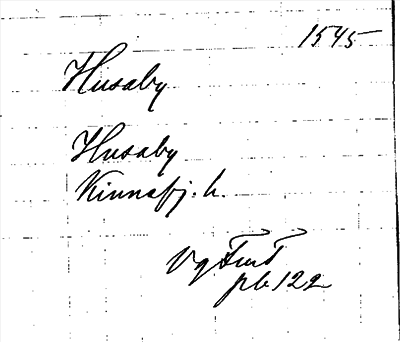 1545
Husaby
Husaby
Kinnefj. h.
Vg FmT
pb 122